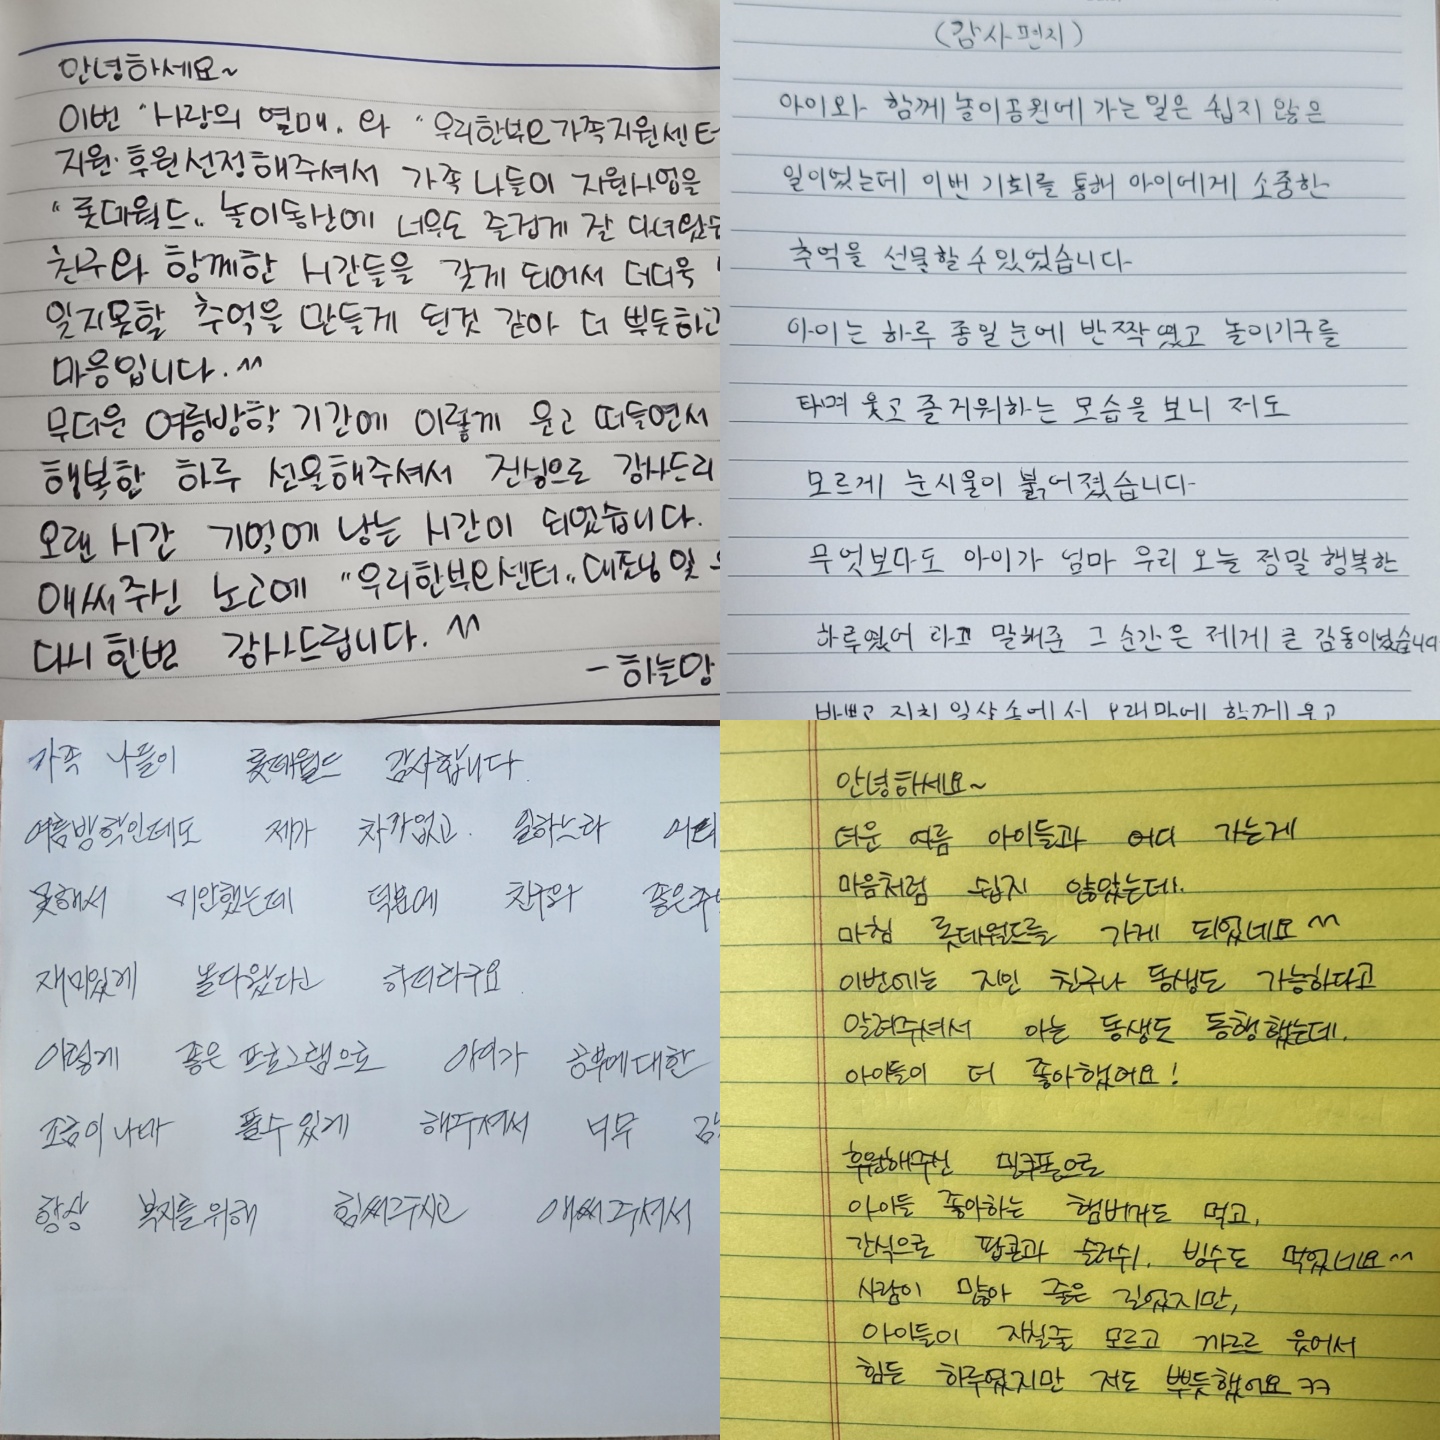 안녕하세요~
이번 "사랑의 열매" 와 "우리한부모가족지원센터
지원·후원선정해주셔서 가족 나들이 지원사업을
"롯데월드" 놀이동산에 너무도 즐겁게 잘 다녀왔
친구와 함께한 시간들을 갖게 되어서 더더욱
잊지못할 추억을 만들게 된것 같아 더 뿌듯하고
마음입니다. ^^
무더운 여름방학 기간에 이렇게 웃고 떠들면서
행복한 하루 선물해주셔서 진심으로 감사드리
오랜 시간 기억에 남는 시간이 되었습니다.
애써주신 노고에 "우리한부모센터" 대표님 및
다시 한번 감사드립니다. ^^
- 하늘맘
(감사편지)
아이와 함께 놀이공원에 가는 일은 쉽지 않은
일이었는데 이번 기회를 통해 아이에게 소중한
추억을 선물할 수 있었습니다
아이는 하루 종일 눈에 반짝였고 놀이기구를
타며 웃고 즐거워하는 모습을 보니 저도
모르게 눈시울이 붉어졌습니다
무엇보다도 아이가 엄마 우리 오늘 정말 행복한
하루였어 라고 말해준 그 순간은 제게 큰 감동이었습니다
바쁘고 지친 일상 속에서 오래만에 함께 웃고
가족 나들이 롯데월드 감사합니다.
여름방학인데도 제가 차가없고. 일하느라 어디
못해서 미안했는데 덕분에 친구와 좋은추
재미있게 놀다왔다고 하더라구요.
이렇게 좋은 프로그램으로 아이가 공부에대한
조금이나마 풀수있게 해주셔서 너무 감
항상 복지를 위해 힘써주시고 애써주셔서
안녕하세요~
더운 여름 아이들과 어디 가는게
마음처럼 쉽지 않았는데.
마침 롯데월드를 가게 되었네요 ^^
이번에는 지인 친구나 동생도 가능하다고
알려주셔서 아는 동생도 동행했는데.
아이들이 더 좋아했어요!
후원해주신 밀쿠폰으로
아이들 좋아하는 햄버거도 먹고,
간식으로 팝콘과 슬러쉬. 빙수도 먹었네요^^
사람이 많아 줄은 길었지만,
아이들이 지칠줄 모르고 까르르 웃어서
힘든 하루였지만 저도 뿌듯했어요 ㅋㅋ